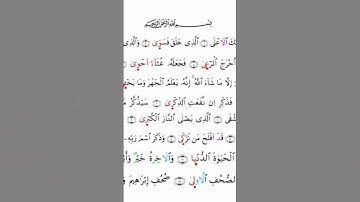 بِسْمِ ٱللَّهِ ٱلرَّحْمَٰنِ ٱلرَّحِيمِ
كَ ٱلْأَعْلَى ۝ ٱلَّذِى خَلَقَ فَسَوَّىٰ ۝ وَٱلَّذِى
أَخْرَجَ ٱلْمَرْعَىٰ ۝ فَجَعَلَهُۥ غُثَآءً أَحْوَىٰ ۝
إِلَّا مَا شَآءَ ٱللَّهُ ۚ إِنَّهُۥ يَعْلَمُ ٱلْجَهْرَ وَمَا يَخْ
فَذَكِّرْ إِن نَّفَعَتِ ٱلذِّكْرَىٰ ۝ سَيَذَّكَّرُ
شْقَى ۝ ٱلَّذِى يَصْلَى ٱلنَّارَ ٱلْكُبْرَىٰ ۝
۝ قَدْ أَفْلَحَ مَن تَزَكَّىٰ ۝ وَذَكَرَ ٱسْمَ رَبِّهِۦ
ٱلْحَيَوٰةَ ٱلدُّنْيَا ۝ وَٱلْءَاخِرَةُ خَيْرٌ وَأَبْ
ٱلصُّحُفِ ٱلْأُولَىٰ ۝ صُحُفِ إِبْرَٰهِيمَ وَ